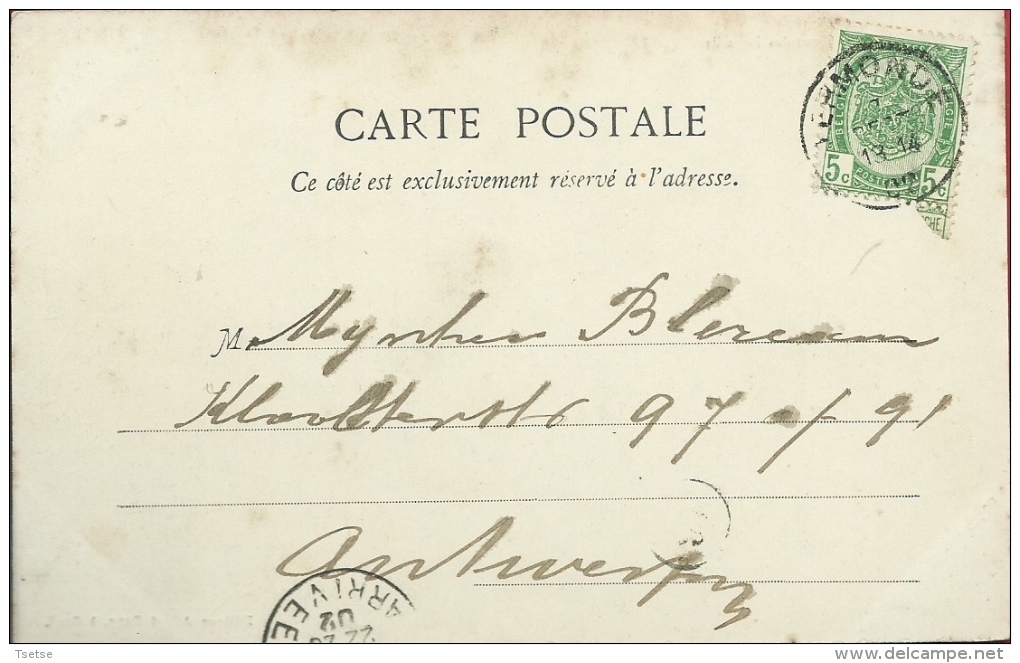 TERMONDE
13-14
BELGIQUE
5c POSTES 5c
CARTE POSTALE
Ce côté est exclusivement réservé à l'adresse.
M. Mynheer
Kloosterstr 97 of 91
Antwerpen
ARRIVEE
02
Tsetse
delcampe.net